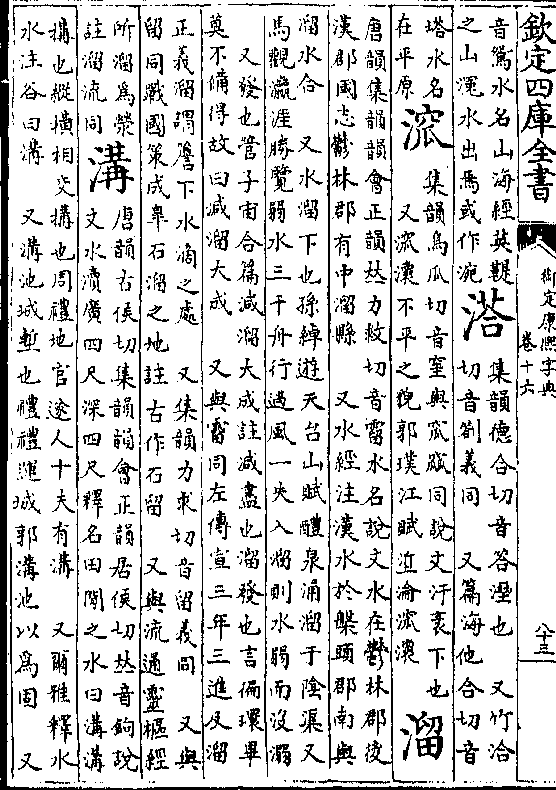 欽定四庫全書
御定康熙字典
卷十六
八十三
音駕水名山海經英鞮
之山渾水出焉或作涴
溚
集韻德合切音答溼也 又竹洽
切音劄義同 又篇海他合切音
塔水名
在平原
溛
集韻烏瓜切音窐與窊窳同說文汙衺下也
又溛瀼不平之貌郭璞江賦泓瀹溛瀼
溜
唐韻集韻韻會正韻𠀤力救切音霤水名說文水在鬱林郡後
漢郡國志鬱林郡有中溜縣 又水經注漢水於槃頭郡南與
溜水合 又水溜下也孫綽遊天台山賦醴泉涌溜于陰渠又
馬觀瀛涯勝覽弱水三千舟行遇風一失入溜則水弱而没溺
又發也管子宙合篇減溜大成註減盡也溜發也言徧環畢
莫不備得故曰減溜大成 又與霤同左傳宣三年三進及溜
正義溜謂簷下水滴之處 又集韻力求切音留義同 又與
留同戰國策成皋石溜之地註古作石留 又與流通靈樞經
所溜爲滎
註溜流同
溝
唐韻古侯切集韻韻會正韻居侯切𠀤音鉤說
文水瀆廣四尺深四尺釋名田間之水曰溝溝
搆也縱橫相交搆也周禮地官遂人十夫有溝 又爾雅釋水
水注谷曰溝 又溝池城塹也禮禮運城郭溝池以爲固 又